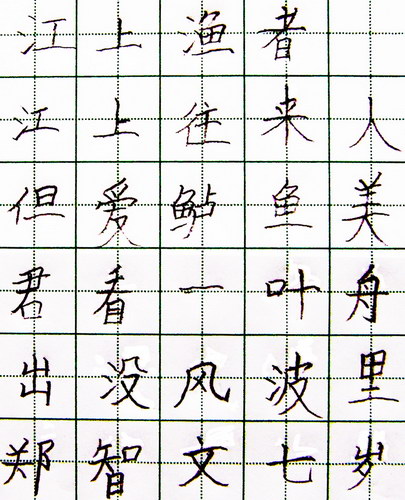 江上渔者
江上往来人
但爱鲈鱼美
君看一叶舟
出没风波里
郑智文七岁